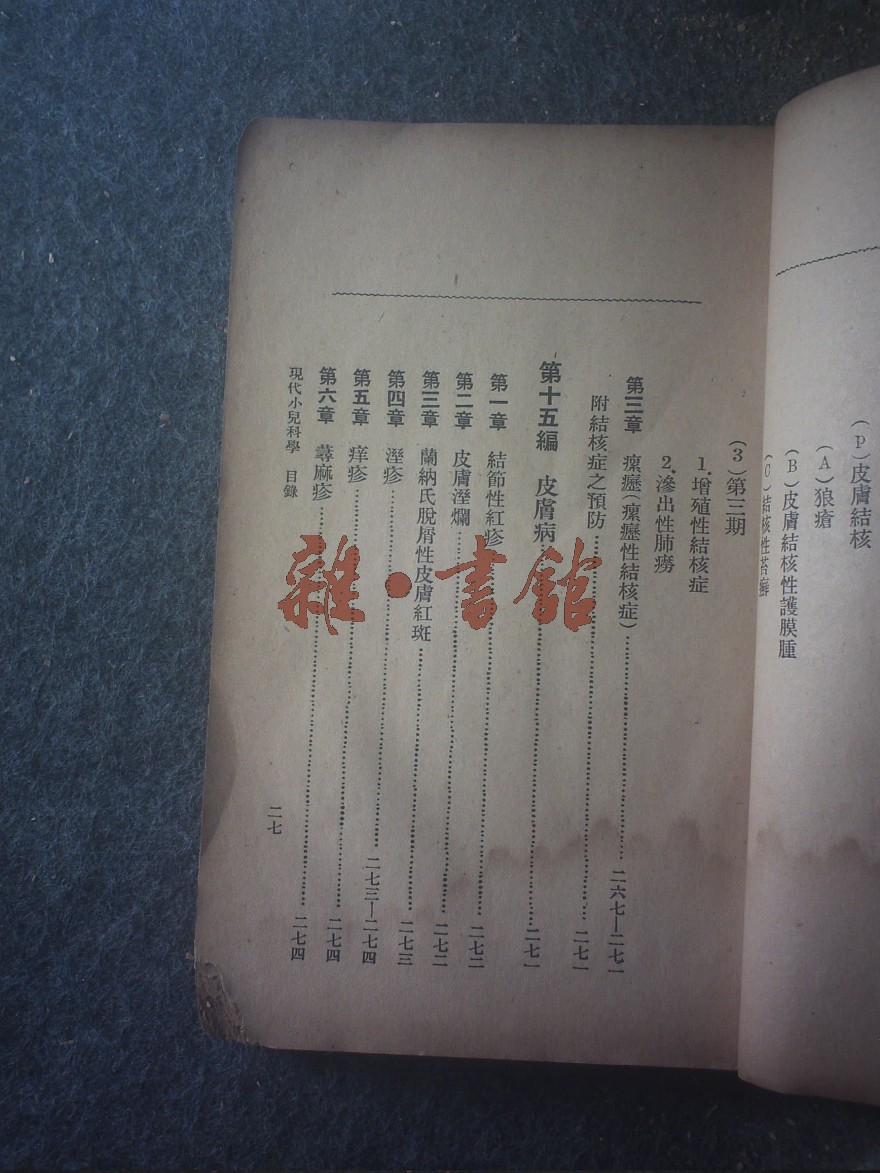 (p)皮膚結核
(A)狼瘡
(B)皮膚結核性護膜腫
(C)結核性苔癬
(3)第三期
1.增殖性結核症
2.滲出性肺癆
第三章 瘰癧(瘰癧性結核症)……二六七—二七一
附結核症之預防……二七一
第十五編 皮膚病……二七一
第一章 結節性紅疹……二七二
第二章 皮膚溼爛……二七二
第三章 蘭納氏脫屑性皮膚紅斑……二七三
第四章 溼疹……二七三—二七四
第五章 痒疹……二七四
第六章 蕁麻疹……二七四
現代小兒科學 目錄
二七
雜·書館